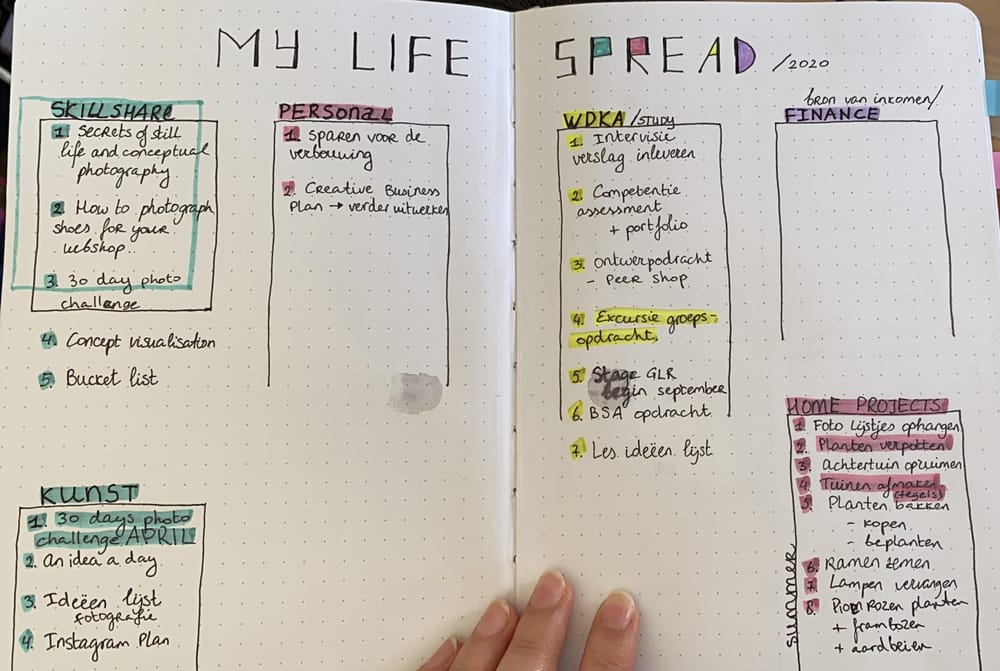 MY LIFE SPREAD /2020
SKILLSHARE
1. Secrets of still
life and conceptual
photography
2. How to photograph
shoes for your
webshop.
3. 30 day photo
challenge
4. Concept visualisation
5. Bucket list
PERSONAL
1. Sparen voor de
verbouwing
2. Creative Business
Plan → verder uitwerken
KUNST
1. 30 days photo
challenge APRIL
2. An idea a day
3. Ideëen lijst
fotografie
4. Instagram Plan
WDKA /STUDY
1. Intervisie
verslag inleveren
2. Competentie
assessment
+ portfolio
3. Ontwerpodracht
- Peer shop
4. Excursie groeps-
opdracht.
5. Stage GLR
begin september
6. BSA opdracht
7. Les ideëen lijst
bron van inkomen/
FINANCE
HOME PROJECTS
1. Foto lijstjes ophangen
2. Planten verpotten
3. Achtertuin opruimen
4. Tuinen afmaken
(tegels)
5. Planten bakken
- kopen
- beplanten
6. Ramen zemen
7. Lampen vervangen
8. Pioen Rozen planten
+ frambozen
+ aardbeien
SUMMER